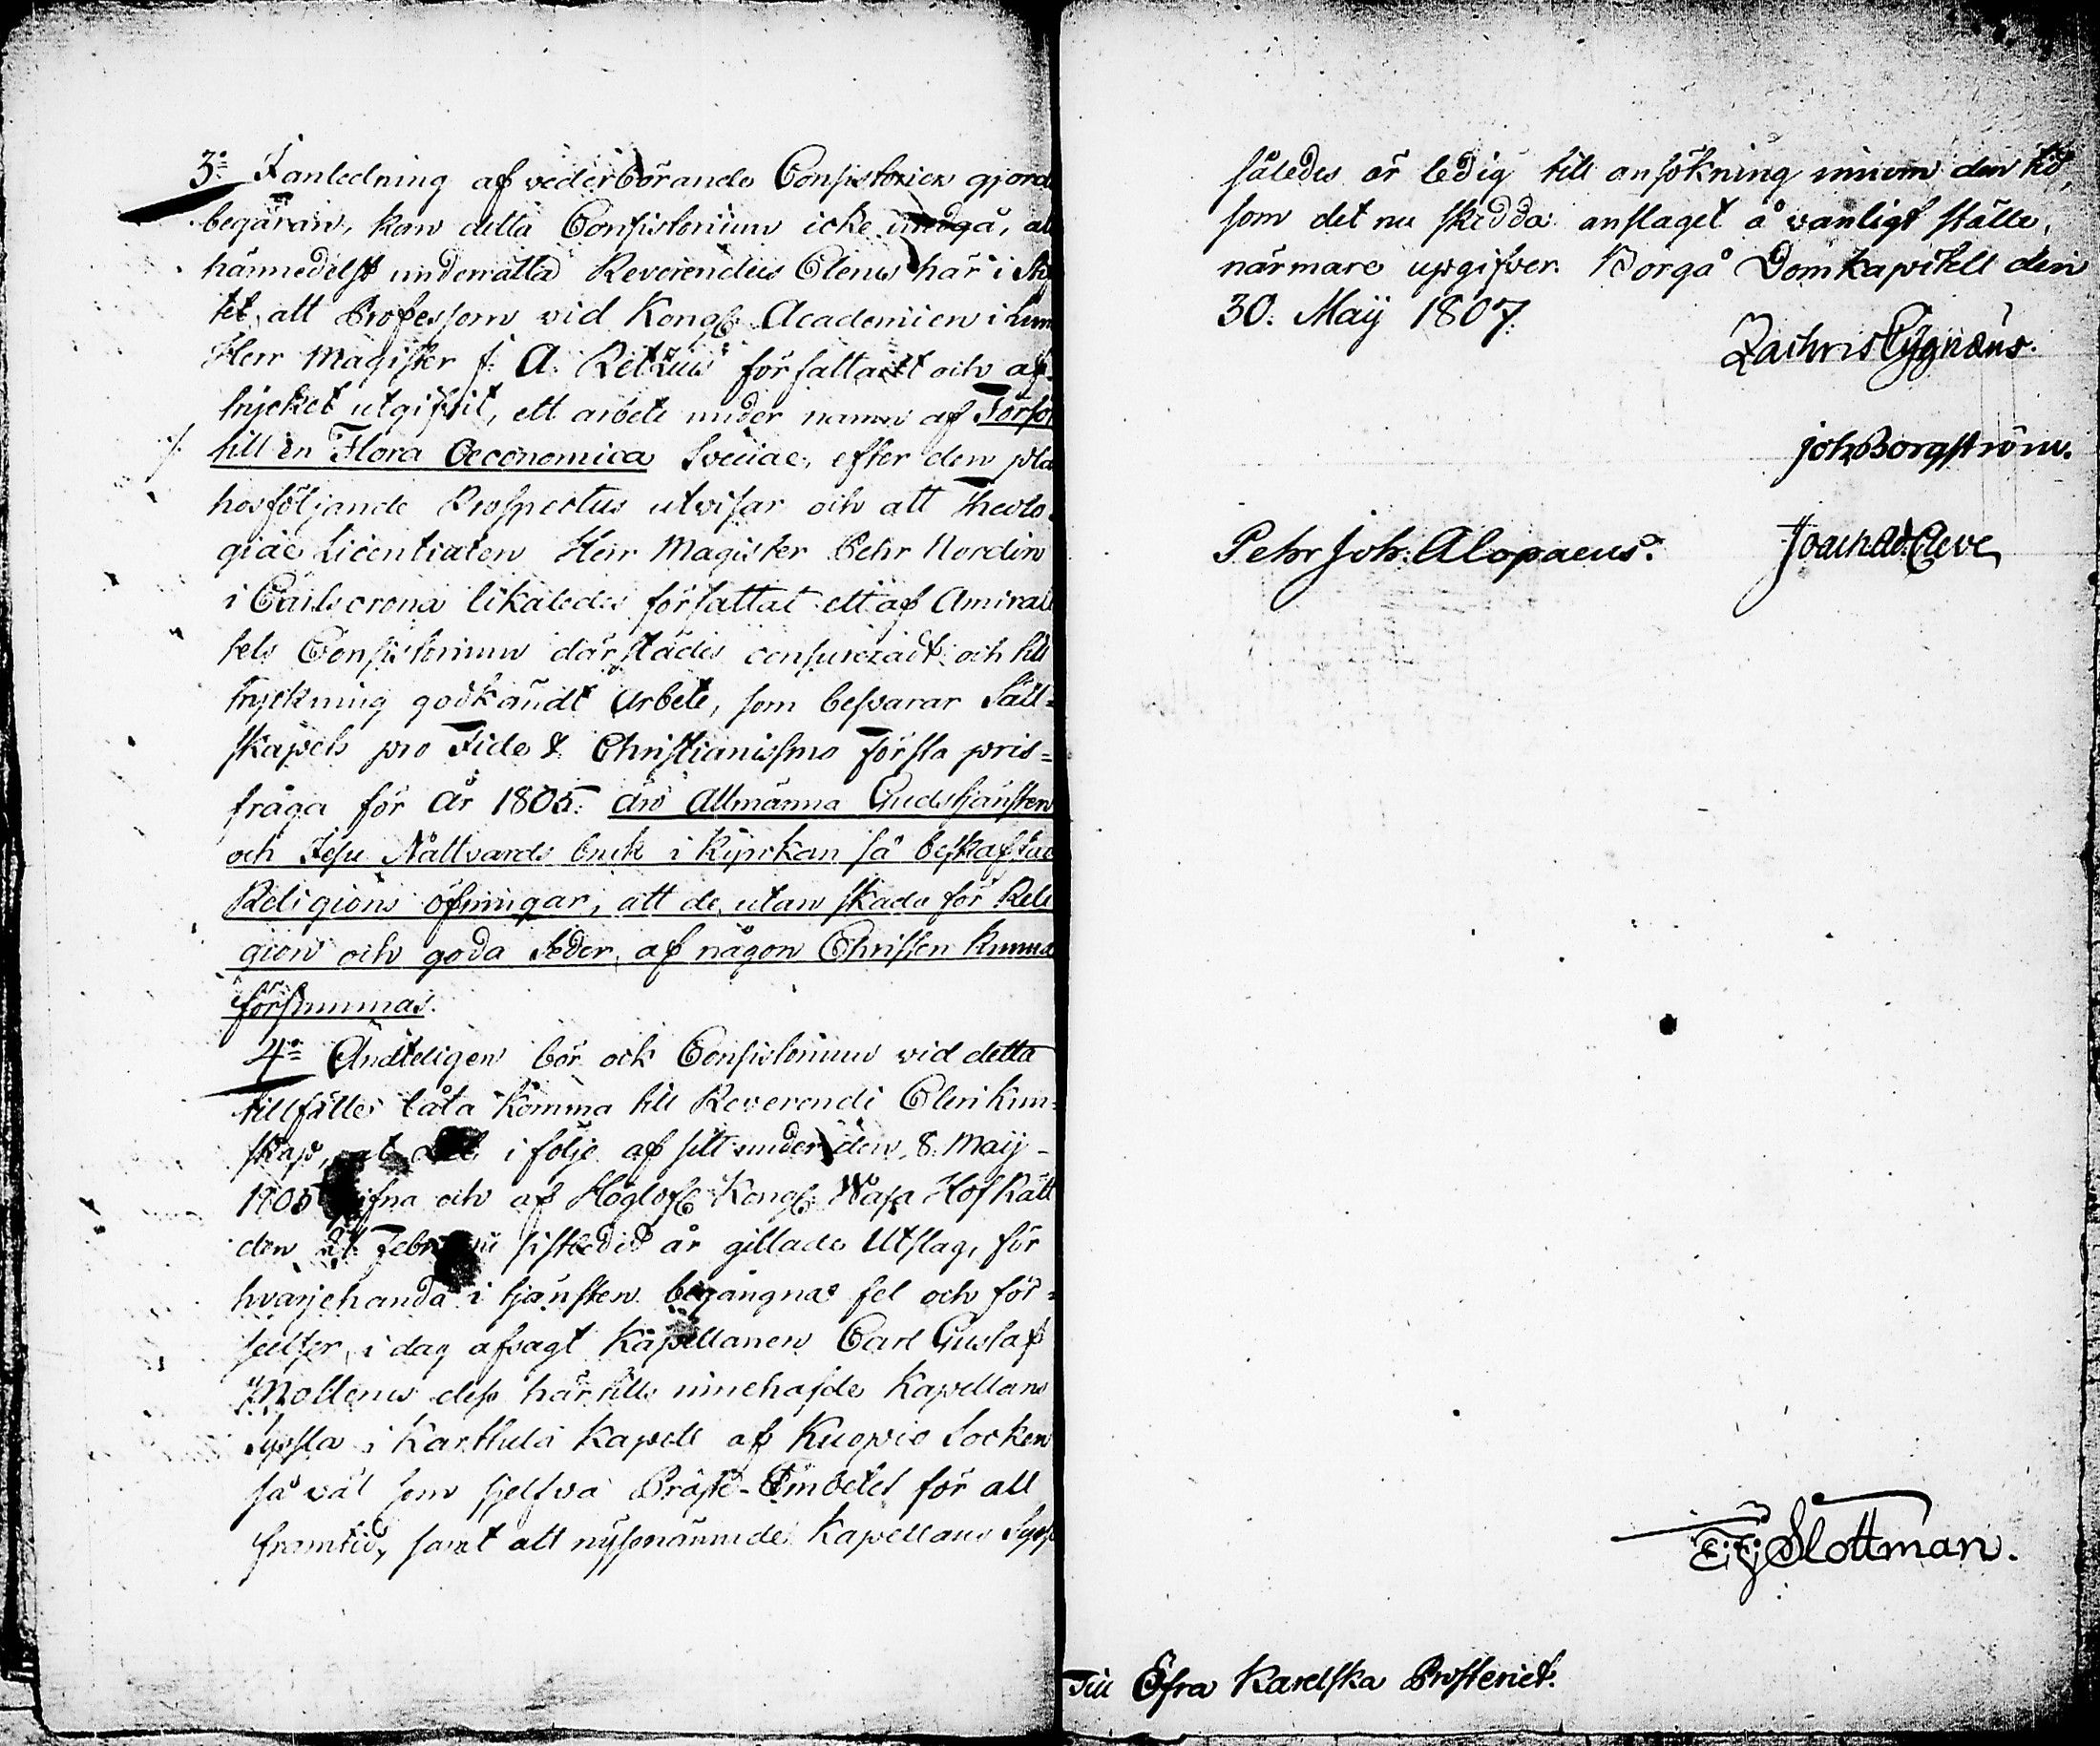 3:o I anledning af vederbörande Consistorier gjord
begäran, kan detta Consistorium icke undgå, at
härmedelst underrätta Reverendus Clerus här i Stif
tet, att Professorn vid Kongl. Academien i Lun
Herr Magister f. A. Retzius författat och af
trycket utgifvit, ett arbete under namn af Försök
till en Flora Oeconomica Sveciae, efter den pla
hosföljande Prospectus utvisar och att Theolo-
giae Licentiaten Herr Magister Pehr Nordin
i Carlscrona likaledes författat ett af Amirali
tets Consistorium därstädes censureradt och till
tryckning godkändt Arbete, som besvarar Säll-
skapets pro Fide & Christianismo första pris-
fråga för år 1805: äro Allmänna Gudstjänsten
och Jesu Nattvards bruk i Kyrkan så beskaffad
Religions öfningar, att de utan skada för Reli
gion och goda Seder af någon Christen kunna
försummas.
4:o Ändteligen bör ock Consistorium vid detta
tillfälle låta komma till Reverendi Cleri kun-
skap, at i följe af sitt under den 8. Maij
1805 gifna och af Höglofl. Kongl. Wasa HofRätt
den 21 Februarii sistledit år gillade Utslag, för
hvarjehanda i tjänsten begångna fel och för-
seelser, i dag afsagt Kapellanen Carl Gustaf
Mollerus dess härtills innehafde Kapellans
Syssla i Karttula Kapell af Kuopio Socken
så väl som sjelfva Präste-Embetet för all
framtid, samt att nyssnämnde Kapellans Syss
således är ledig till ansökning innom den tid,
som det nu skedda anslaget å vanligt ställe,
närmare upgifver. Borgå Domkapitell den
30. Maij 1807.
Zachris Cygnæus.
Joh Borgström.
Pehr Joh: Alopaeus. Joach Ad: Cleve
Slottman.
Till Öfra Karelska Prosteriet.